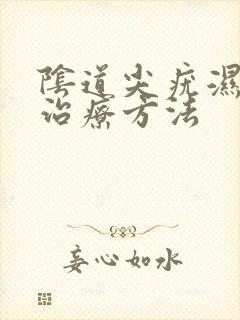 陰道尖疣濕
治療方法
妄心如水